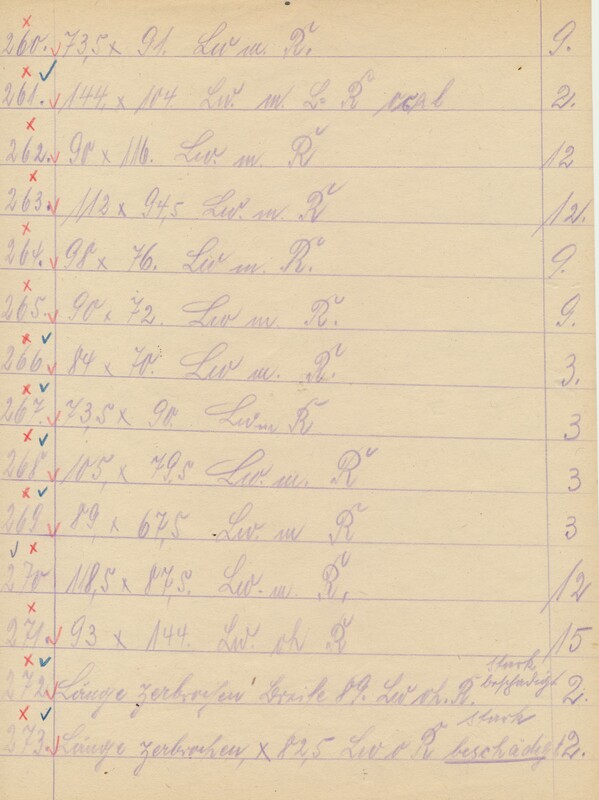 260. 73,5 x 91. Lw m. R. 9.
261. 144 x 104. Lw. m. L= R oval 2.
262. 90 x 116. Lw. m. R 12
263. 112 x 94,5 Lw. m. R 12.
264. 98 x 76. Lw m. R. 9.
265. 90 x 72. Lw m. R. 9.
266 84 x 70. Lw m. R. 3.
267. 73,5 x 90. Lw m R 3
268 105, x 79,5 Lw. m. R 3
269 89, x 67,5 Lw. m R 3
270 118,5 x 87,5. Lw. m. R. 12
271. 93 x 144. Lw. oh R 15
272. Länge zerbrochen Breite 89. Lw oh. R. stark beschädigt 2.
273. Länge zerbrochen, x 82,5 Lw o R stark beschädigt 2.